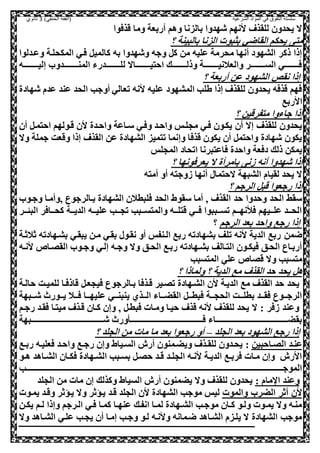 سلسلة التفوق في المواد الشرعية (الفقه الحنفي) 3 ثانوي
لا يحدون للقذف لأنهم شهدوا بالزنا وهم أربعة وما قذفوا
متى يحكم القاضي بثبوت الزنا بالبينة ؟
إذا ذكر الشهود أنها محرمة عليه من كل وجه وشهدوا به كالميل في المكحلة وعدلوا
في السر والعلانية وذلك احتيالا للدرء المندوب إليه
إذا نقص الشهود عن أربعة ؟
فهم قذفه يحدون للقذف إذا طلب المشهود عليه لأنه تعالى أوجب الحد عند عدم شهادة
الأربع
إذا جاءوا متفرقين ؟
يحدون للقذف إلا أن يكون في مجلس واحد وفي ساعة واحدة لأن قولهم احتمل أن
يكون شهادة واحتمل أن يكون قذفا وإنما تتميز الشهادة عن القذف إذا وقعت جملة ولا
يمكن ذلك دفعة واحدة فاعتبرنا اتحاد المجلس
إذا شهدوا أنه زنى بامرأة لا يعرفونها ؟
لا يحد لقيام الشبهة لاحتمال أنها زوجته أو أمته
إذا رجعوا قبل الرجم ؟
سقط الحد وحدوا حد القذف , أما سقوط الحد فلبطلان الشهادة بالرجوع ,وأما وجوب
الحد عليهم فلأنهم تسببوا في قتله والمتسبب تجب عليه الدية كحافر البئر
إذا رجع واحد بعد الرجم ؟
ضمن ربع الدية لأنه تلف بشهادته ربع النفس أو نقول بقي من يبقي بشهادته ثلاثة
أرباع الحق فيكون التالف بشهادته ربع الحق ولا وجه إلي وجوب القصاص لأنه
متسبب ولا قصاص علي المتسبب
هل يحد حد القذف مع الدية ؟ ولماذا ؟
يحد حد القذف مع الدية لأن الشهادة تصير قذفا بالرجوع فيجعل قاذفا للميت حالة
الرجوع فقد بطلت الحجة فبطل القضاء الذي ينبني عليها فلا يورث شبهة
وعند زفر : لا يحد للقذف لأنه قذف حيا ومات فبطل , وإن كان قذف ميتا فقد رجم
بقضاء فأورث شبهة
إذا رجع الشهود بعد الجلد – أو رجعوا بعد ما مات من الجلد ؟
عند الصاحبين : يحدون للقذف ويضمنون أرش السياط وإن رجع واحد فعليه ربع
الأرش وإن مات فربع الدية لأنه الجلد قد حصل بسبب الشهادة فكان الشاهد هو
الموجب
وعند الإمام : يحدون للقذف ولا يضمنون أرش السياط وكذلك إن مات من الجلد
لأن أثر الضرب والموت ليس موجب الشهادة لأن الجلد قد يؤثر ولا يؤثر وقد يموت
منه ولا يموت ولو كان موجب الشهادة لما انفك عنها كما في الرجم وإذا لم يكن
موجب الشهادة لا يلزم الشاهد ضمانه ولأنه لو وجب إما أن يجب على الشاهد ولا